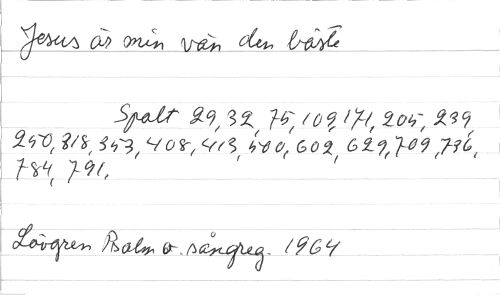 Jesus är min vän den bäste
Spalt 29, 32, 75, 109, 171, 205, 239,
250, 318, 353, 408, 413, 500, 602, 629, 709, 736,
784, 791.
Lövgren Psalm o. sångreg. 1964